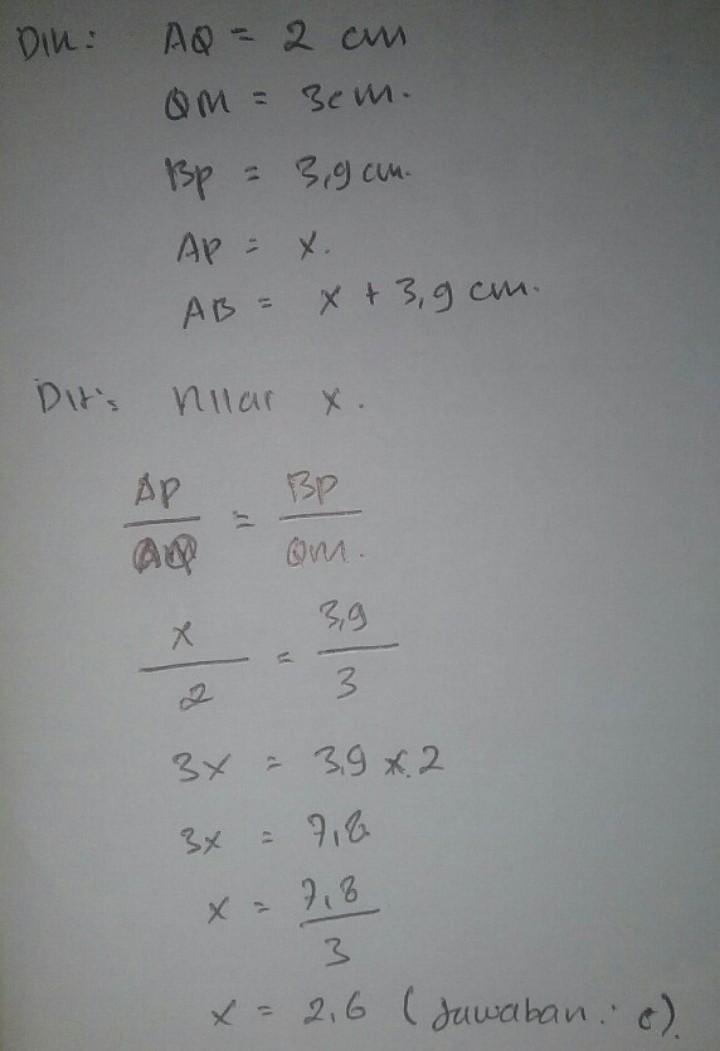 Dik: AQ = 2 cm
QM = 3cm.
Bp = 3,9 cm.
AP = x.
AB = x + 3,9 cm.
Dit: Nilai x.
AP/AQ = BP/QM.
x/2 = 3,9/3
3x = 3,9 x 2
3x = 7,8
x = 7,8/3
x = 2,6 (Jawaban: c).